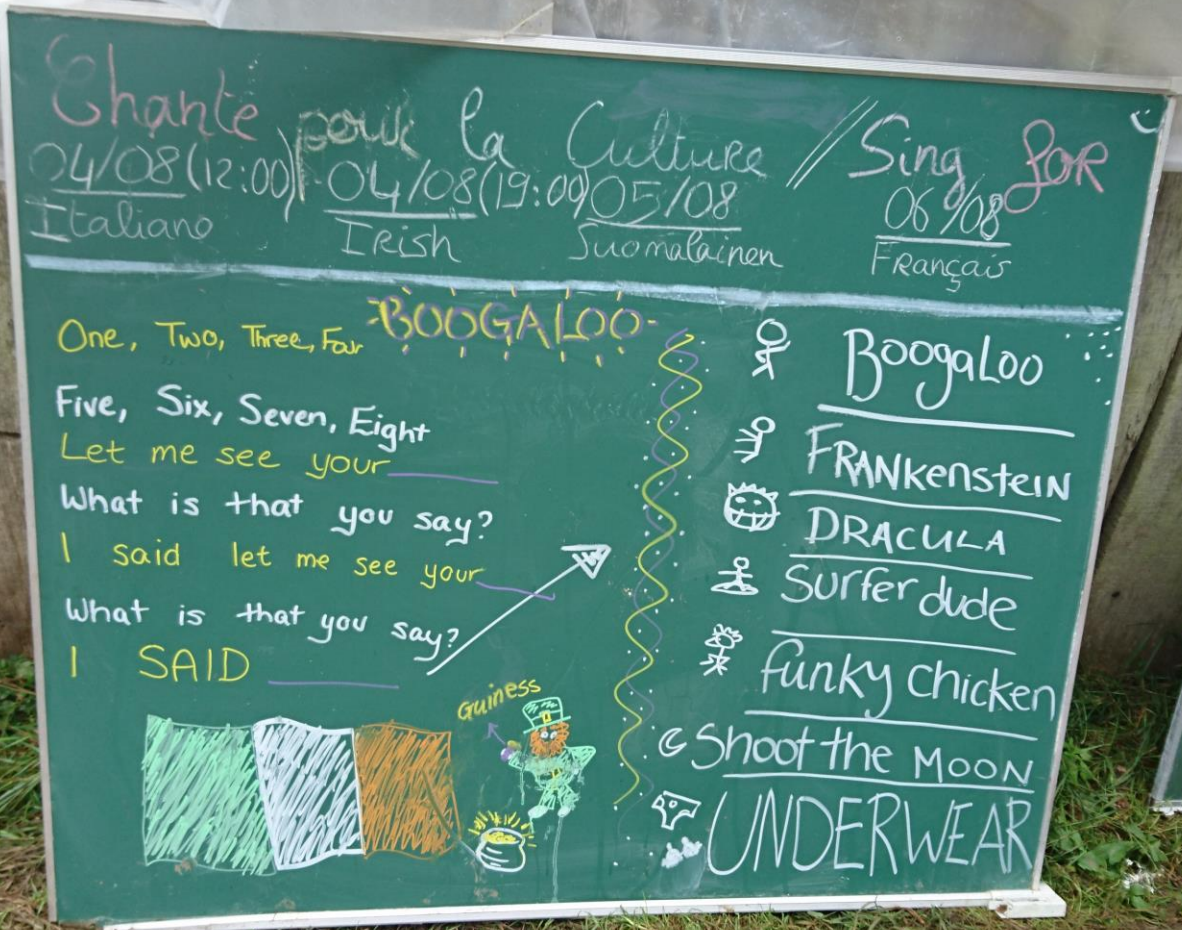 Chante pour la Culture // Sing for
04/08 (12:00) 04/08 (19:00) 05/08 06/08
Italiano Irish Suomalainen Français
BOOGALOO
One, Two, Three, Four
Five, Six, Seven, Eight
Let me see your______
What is that you say?
I said let me see your____
What is that you say?
I SAID ______
Guiness
BoogaLoo
FRANkensteIN
DRACULA
Surfer dude
funky chicken
Shoot the MOON
UNDERWEAR